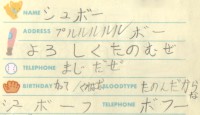 NAME シュボー
ADDRESS プルルルルル ボー
よろしくたのむぜ
TELEPHONE まじだぜ
BIRTHDAY BLOODTYPE たのんだからな
シュボーフ TELEPHONE ボフー